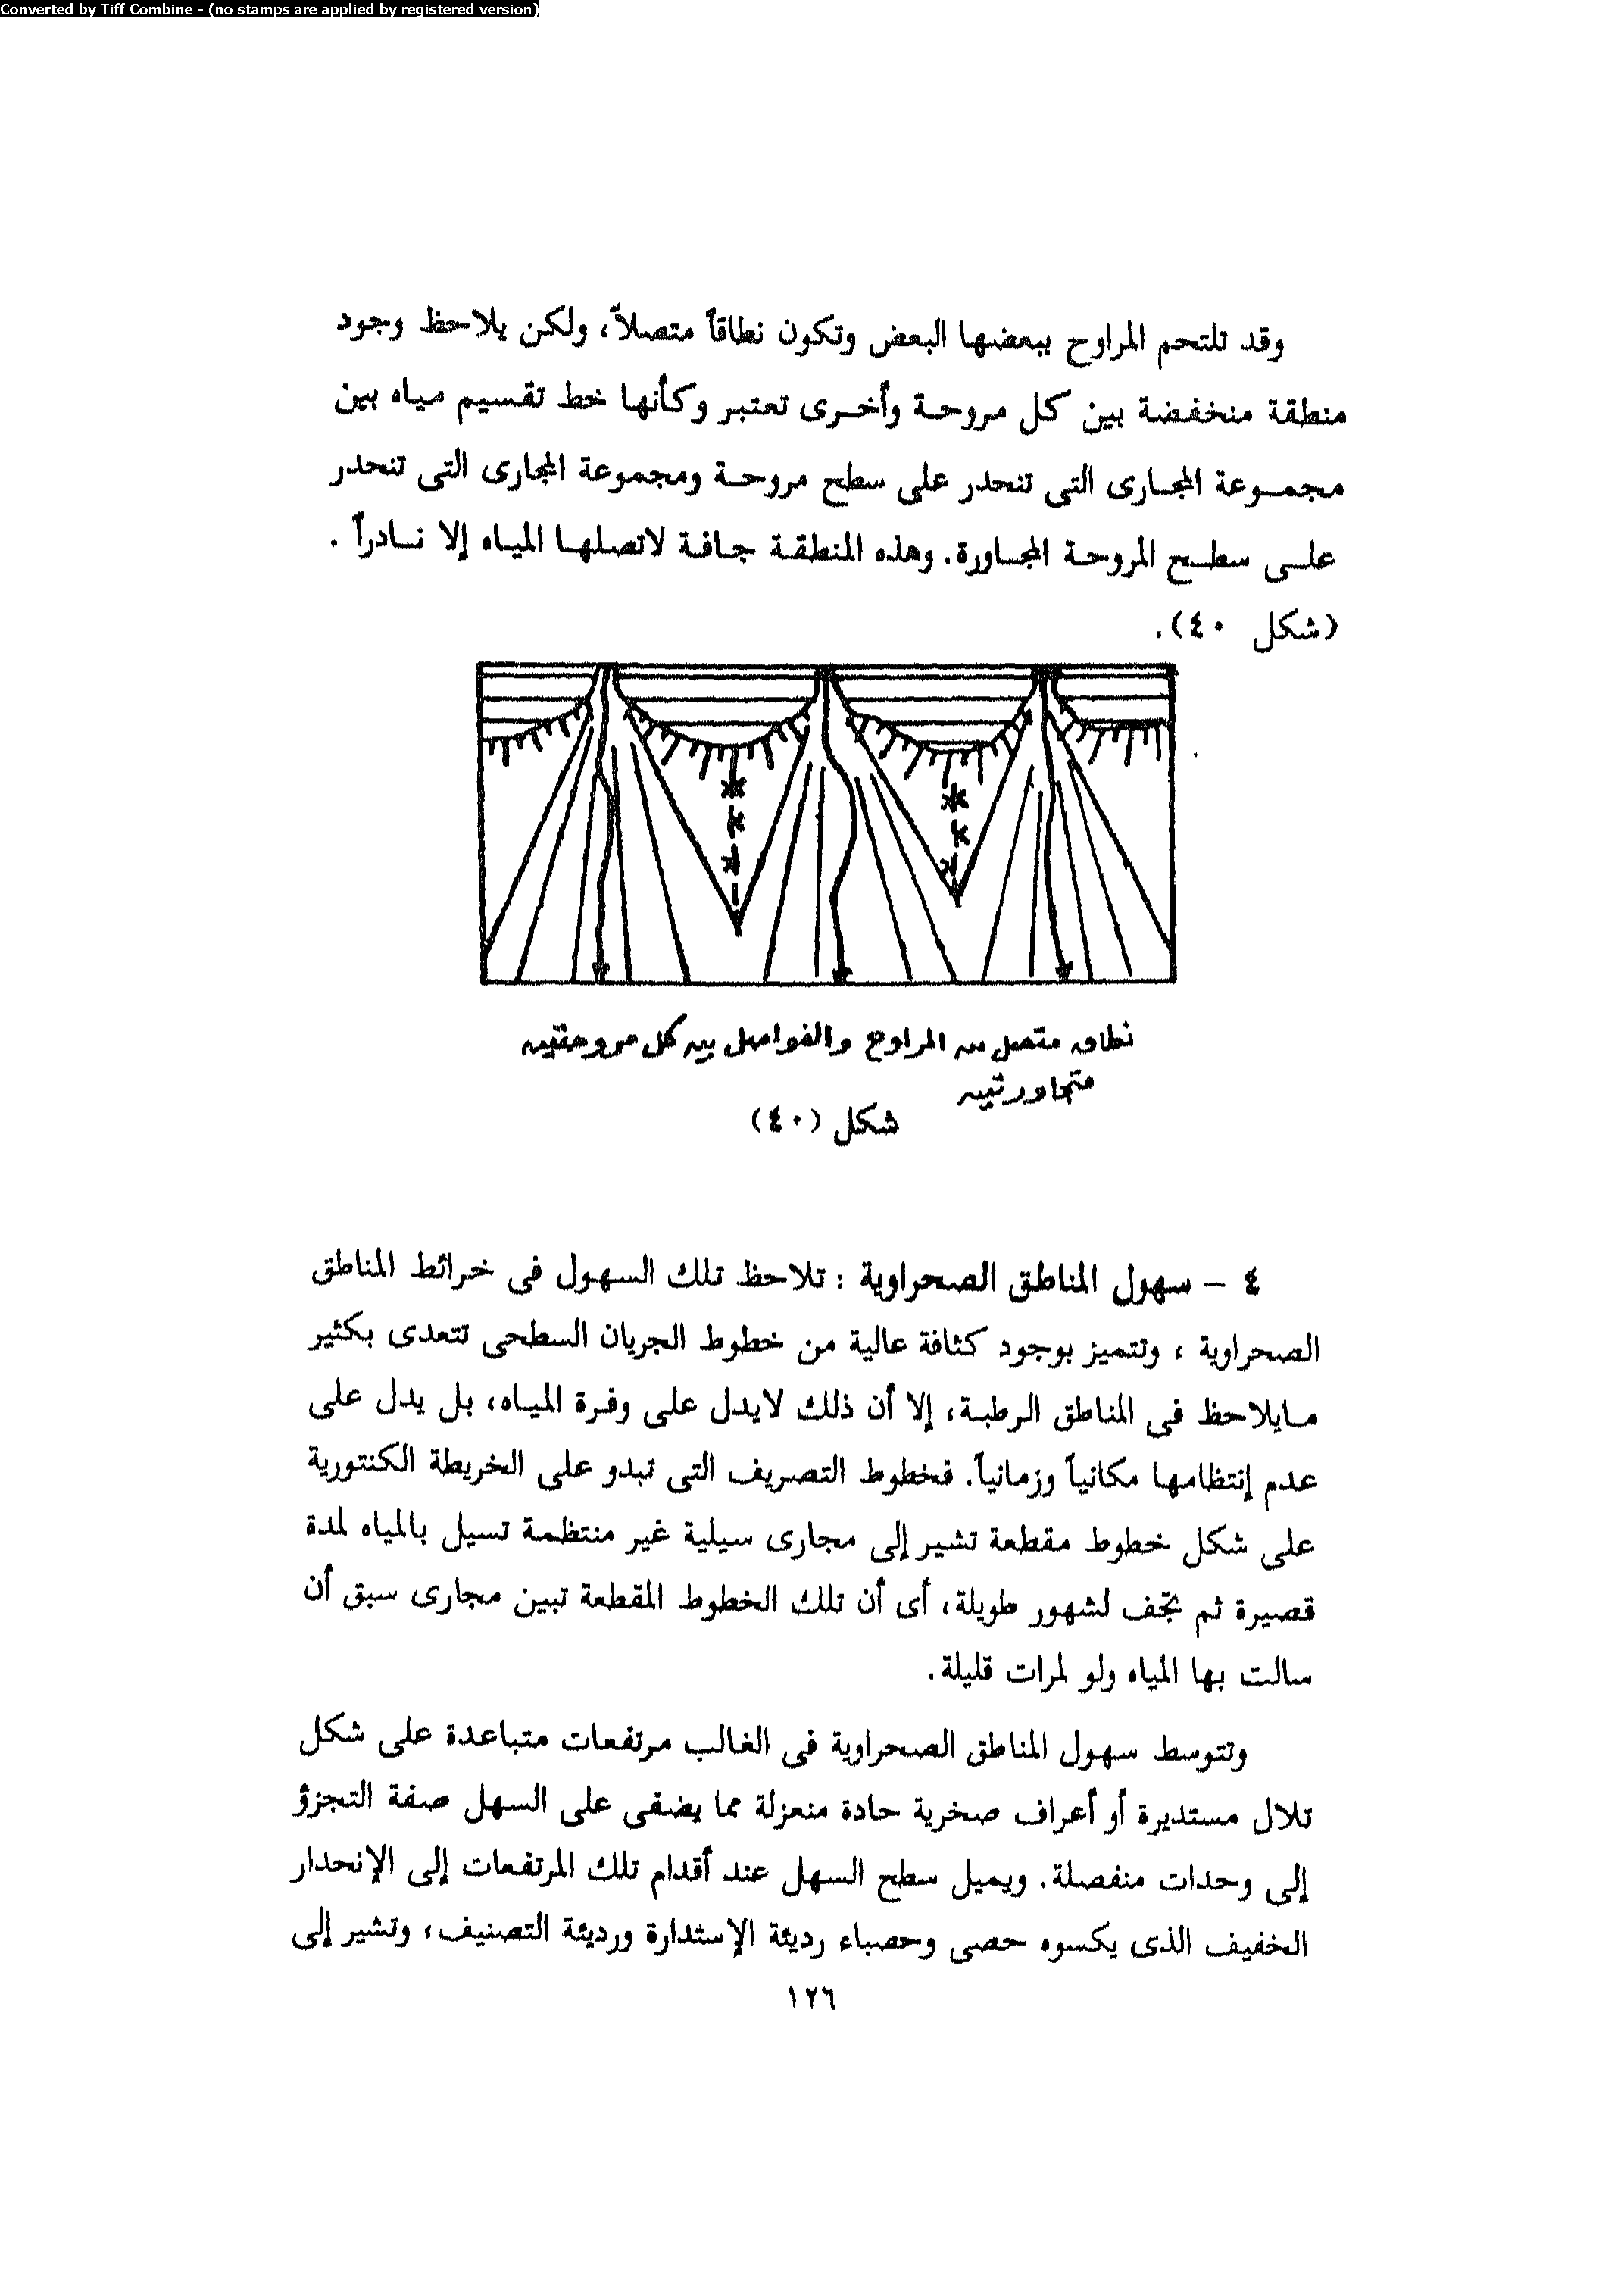 Converted by Tiff Combine - (no stamps are applied by registered version)
وقد تلتحم المراوح ببعضها البعض وتكون نطاقاً متصلاً، ولكن يلاحظ وجود
منطقة منخفضة بين كل مروحة وأخرى تعتبر وكأنها خط تقسيم مياه بين
مجموعة المجارى التى تنحدر على سطح مروحة ومجموعة المجارى التى تنحدر
على سطح المروحة المجاورة. وهذه المنطقة جافة لاتصلها المياه إلا نادراً .
(شكل ٤٠).
نطاق متصل من المراوح والفواصل بين كل مروحتين
متجاورتين
شكل (٤٠)
٤ - سهول المناطق الصحراوية : تلاحظ تلك السهول فى خرائط المناطق
الصحراوية ، وتتميز بوجود كثافة عالية من خطوط الجريان السطحى تتعدى بكثير
مايلاحظ فى المناطق الرطبة، إلا أن ذلك لايدل على وفرة المياه، بل يدل على
عدم إنتظامها مكانياً وزمانياً. فخطوط التصريف التى تبدو على الخريطة الكنتورية
على شكل خطوط مقطعة تشير إلى مجارى سيلية غير منتظمة تسيل بالمياه لمدة
قصيرة ثم تجف لشهور طويلة، أى أن تلك الخطوط المقطعة تبين مجارى سبق أن
سالت بها المياه ولو لمرات قليلة.
وتتوسط سهول المناطق الصحراوية فى الغالب مرتفعات متباعدة على شكل
تلال مستديرة أو أعراف صخرية حادة منعزلة مما يضفى على السهل صفة التجزؤ
إلى وحدات منفصلة. ويميل سطح السهل عند أقدام تلك المرتفعات إلى الإنحدار
الخفيف الذى يكسوه حصى وحصباء رديئة الإستدارة ورديئة التصنيف، وتشير إلى
١٢٦